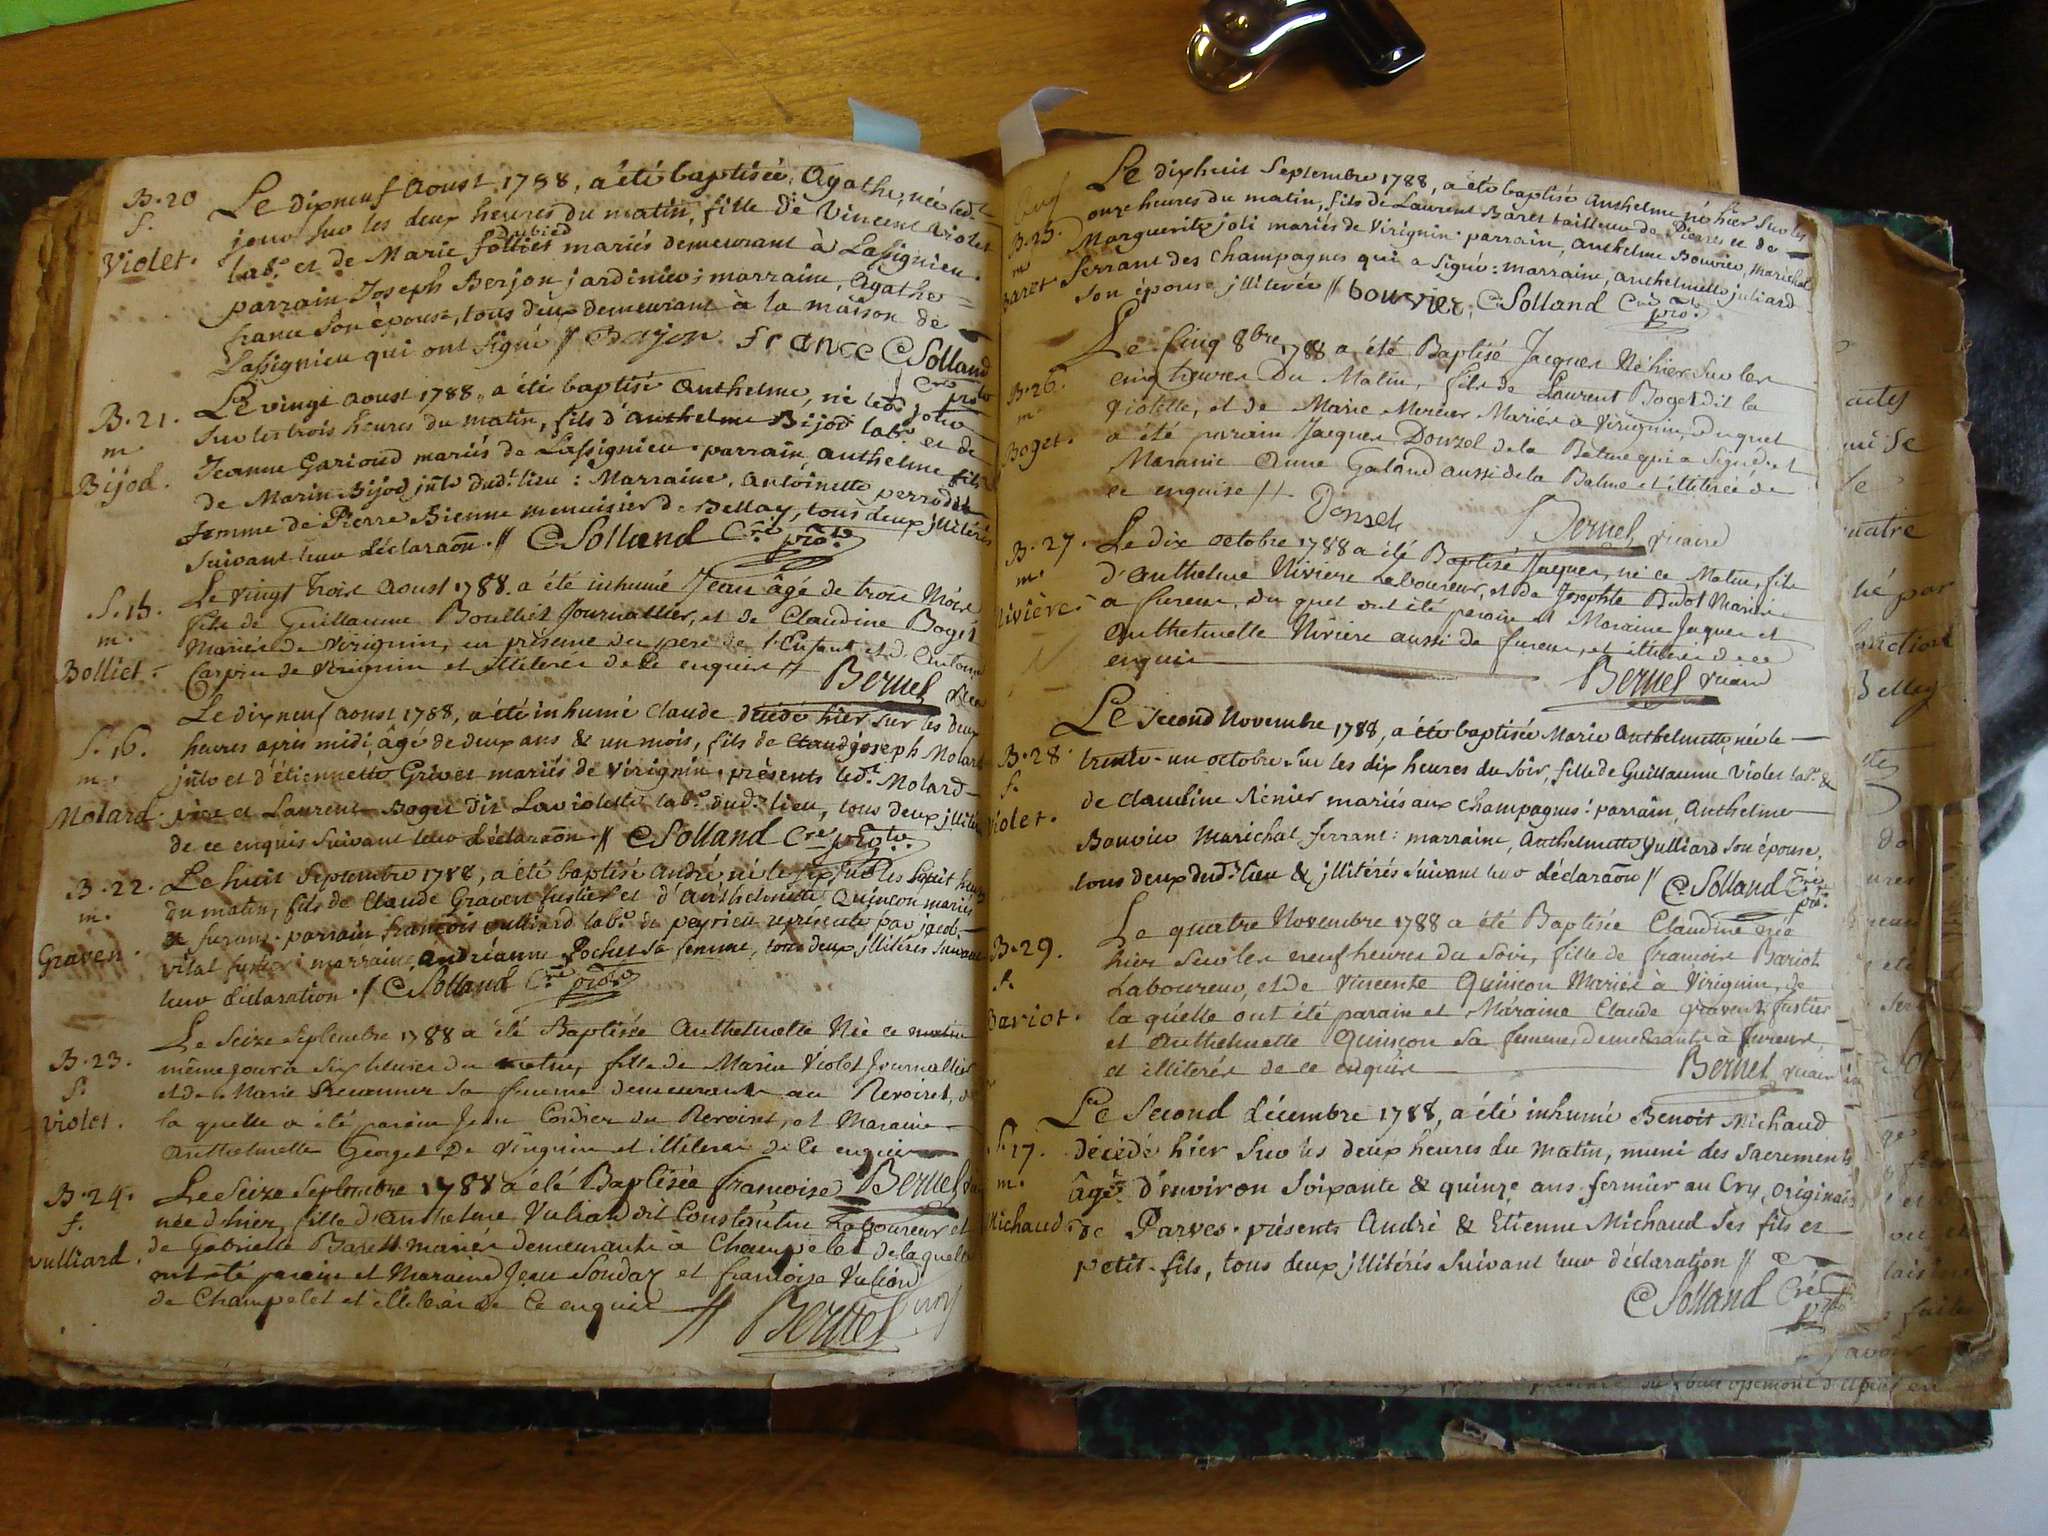 B. 20
f.
Violet.
Le dixneuf aoust 1788, a été baptisée, Agathe, née led.
jour sur les deux heures du matin, fille de Vincent Violet
lab.r et de Marie mariés demeurant à Lassignieu.
parrain Joseph Berjon jardinier; marraine, Agathe
france son épouse, tous deux demeurant à la maison de
Lassignieu qui ont signé // Berjon. france CSolland
Cré
B. 21.
m
Bijod.
Le vingt aoust 1788, a été baptisé Anthelme, né led. jour
sur les trois heures du matin, fils d'Anthelme Bijod lab.r et de
Jeanne Garioud mariés de Lassignieu. parrain, anthelme fils
de Marin Bijod dud. lieu : Marraine, Antoinette
femme de Pierre Bienne menuisier de Bellay, tous deux jllitérés
suivant leur déclaraõn. // CSolland Cré
S. 15.
m.
Bolliet.
Le vingt trois aoust 1788. a été inhumé Jean âgé de trois Mois
fils de Guillaume Boulliet Journallier, et de Claudine Boget
Mariés de Virignin, en présence du père de l'Enfant et d'Antoine
Carpin de Virignin et illiterés de ce enquis // Bernel vicaire
S. 16.
m.
Molard.
Le dixneuf aoust 1788, a été inhumé Claude décédé hier sur les deux
heures après midi, âgé de deux ans & un mois, fils de joseph Molard
et d'étiennette Grivet mariés de Virignin. présents led.t Molard
père et Laurent Boget dit Laviolette lab.r dud. lieu, tous deux jllitérés
de ce enquis suivant leur déclaraõn // CSolland Cré
B. 22.
m.
Graven.
Le huit Septembre 1788, a été baptisé André né le six, sur les sept heures
du matin, fils de Claude Graven fustier et d'Anthelmette Quinçon mariés
à furans. parrain françois vulliard lab.r de peyrieu représenté par jacob
vital fustier : marraine, andréanne Rochet sa femme, tous deux jllitérés suivant
leur déclaration. / CSolland Cré
B. 23.
f.
violet.
Le seize septembre 1788 a été Baptisée Anthelmette Née ce
même jour à six heures du matin, fille de Marin Violet Journallier
et de Marie sa femme demeurants au Revoiret, de
la quelle a été parain Jean Cordier du Revoiret, et Maraine
Anthelmette Georges de Virignin et illiterés de ce enquis
Bernel
B. 24.
f.
vulliard.
Le Seize Septembre 1788 a été Baptisée françoise
née d hier, fille d'Anthelme Vuliard dit Constantin Laboureur et
de Gabrielle Barett mariés demeurants à Champelet de laquelle
ont été parain et Maraine Jean Soudaz et françoise
de Champelet et illiterés de ce enquis // Bernel
B. 25.
m
Baret
Le dixhuit Septembre 1788, a été baptisé Anthelme né hier sur les
onze heures du matin, fils de Laurent Baret tailleur de Pierres et de
Marguerite joli mariés de Virignin. parrain, Anthelme Bouvier, maréchal
ferrant des champagnes qui a signé : marraine, anthelmette juliard
son épouse jllitérée // bouvier. CSolland Cré
B. 26.
m.
Boget.
Le Cinq 8bre 1788 a été Baptisé Jacques Né hier sur les
cinq heures du Matin, fils de Laurent Boget dit la
Violette, et de Marie Mercier Mariés à Virignin, duquel
a été parain Jacques Donzel de la Balme qui a signé, et
Maranie Anne Galand aussi de la Balme et illiterée de
ce enquise //. Donzel
Bernel vicaire
B. 27.
m.
Nivière.
Le dix octobre 1788 a été Baptisé Jacques, né ce Matin, fils
d'Anthelme Nivière Laboureur, et de Josephte Mariés
a fureur, du quel ont été parain et Maraine Jaques et
Anthelmette Nivière aussi de fureur, et illiterés de ce
enquis
Bernel vicaire
B. 28.
f.
Violet.
Le second Novembre 1788, a été baptisée Marie Anthelmette née le
trente-un octobre sur les dix heures du soir, fille de Guillaume Violet lab.r &
de claudine Rénier mariés aux champagnes : parrain, Anthelme
Bouvier Maréchal ferrant : marraine, Anthelmette Julliard son épouse,
tous deux dud. lieu & jllitérés suivant leur déclaraõn // CSolland Cré
B. 29.
f.
Bariot.
Le quatre Novembre 1788 a été Baptisée Claudine née
hier sur les neuf heures du soir, fille de françois Bariot
Laboureur, et de Vincente Quinçon Mariés à Virignin, de
la quelle ont été parain et Maraine Claude gravent fustier
et Anthelmette Quinçon sa femme, demeurants à fureur,
et illiterés de ce enquis
Bernel vicaire
S. 17.
m.
Michaud.
Le Second décembre 1788, a été inhumé Benoit Michaud
décédé hier sur les deux heures du matin, muni des sacrements
âgé d'environ soixante & quinze ans fermier au Cry, originaire
de Parves. présents André & Etienne Michaud ses fils et
petit-fils, tous deux jllitérés suivant leur déclaration //
CSolland Cré